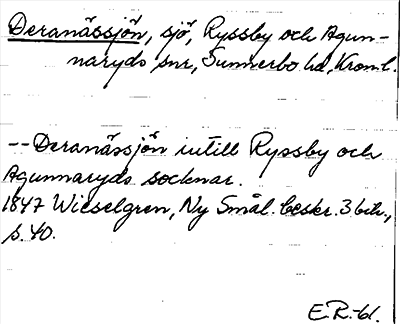 Deranässjön, sjö, Ryssby och Agun-
naryds snr, Sunnerbo hd, Kron.l.
--Deranässjön intill Ryssby och
Agunnaryds socknar.
1847 Wieselgren, Ny Smål. beskr. 3 bd.,
s. 40.
E.R.-61.